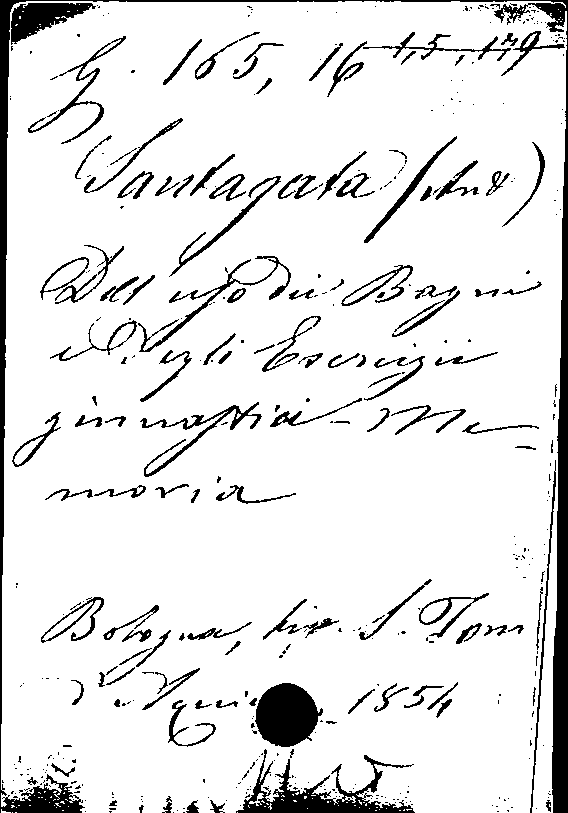 G. 165, 16 1,5, 179
Santagata (Ant)
Dell'uso dei Bagni
e degli Esercizii
ginnastici - Me-
moria
Bologna, tip. S. Tom
d'Aqui 1854